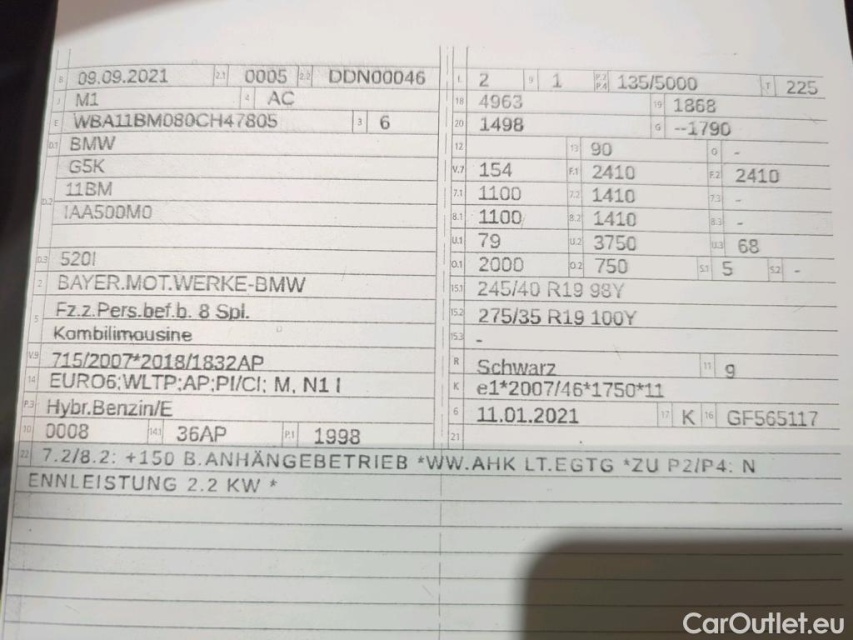 B 09.09.2021 2.1 0005 2.2 DDN00046
J M1 4 AC
E WBA11BM080CH47805 3 6
D.1 BMW
G5K
11BM
D.2 IAA500M0
D.3 520I
2 BAYER.MOT.WERKE-BMW
5 Fz.z.Pers.bef.b. 8 Spl.
Kombilimousine
V.9 715/2007*2018/1832AP
14 EURO6;WLTP;AP;PI/CI; M, N1 I
P.3 Hybr.Benzin/E
10 0008 14.1 36AP P.1 1998
L 2 9 1 P.2 P.4 135/5000 T 225
18 4963 19 1868
20 1498 G --1790
12 13 90 Q -
V.7 154 F.1 2410 F.2 2410
7.1 1100 7.2 1410 7.3 -
8.1 1100 8.2 1410 8.3 -
U.1 79 U.2 3750 U.3 68
O.1 2000 O.2 750 S.1 5 S.2 -
15.1 245/40 R19 98Y
15.2 275/35 R19 100Y
15.3 -
R Schwarz 11 g
K e1*2007/46*1750*11
6 11.01.2021 17 K 16 GF565117
21
22 7.2/8.2: +150 B.ANHÄNGEBETRIEB *WW.AHK LT.EGTG *ZU P2/P4: N
ENNLEISTUNG 2.2 KW *
CarOutlet.eu